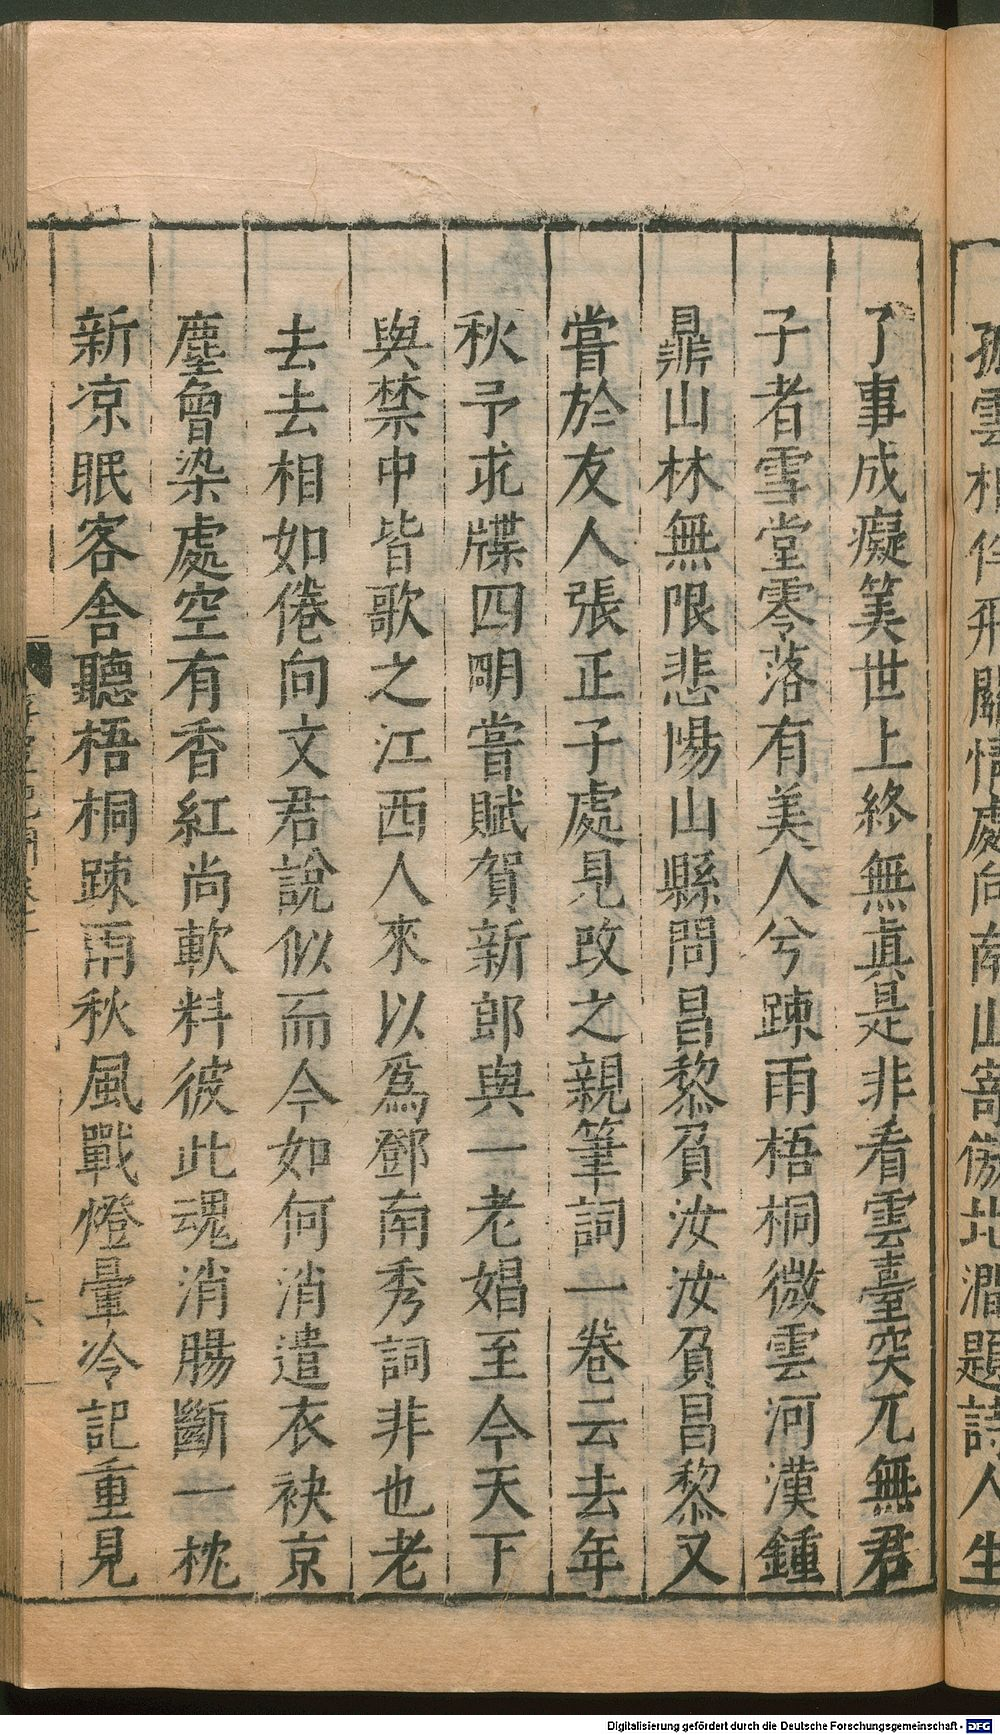 孤雲相伴飛關情處向南山寄傲北澗題詩人生
了事成癡笑世上終無真是非看雲臺突兀無君
子者雪堂零落有美人兮踈雨梧桐微雲河漢鍾
鼎山林無限悲惕山縣問昌黎負汝汝負昌黎又
嘗於友人張正子處見改之親筆詞一卷云去年
秋予求牒四明嘗賦賀新郎與一老娼至今天下
與禁中皆歌之江西人來以爲鄧南秀詞非也老
去去相如倦向文君說似而今如何消遣衣袂京
塵曾染處空有香紅尚軟料彼此魂消腸斷一枕
新凉眠客舍聽梧桐踈雨秋風戰燈暈冷記重見
Digitalisierung gefördert durch die Deutsche Forschungsgemeinschaft - DFG